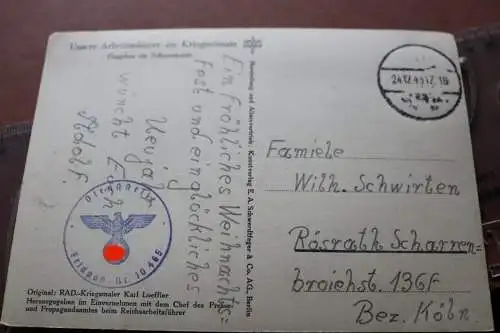 Unsere Arbeitsmänner im Kriegseinsatz
Ein Fröhliches Weihnachts=
fest und ein glückliches
Neujahr
wünscht Euch
Adolf.
Feldpost Nr. 10465
Original: RAD.-Kriegsmaler Karl Loeffler
Herausgegeben im Einvernehmen mit dem Chef des Presse-
und Propagandaamtes beim Reichsarbeitsführer
Herstellung und Alleinvertrieb: Kunstverlag E. A. Schwerdtfeger & Co. AG., Berlin
24.12.41.17-18
Famiele
Wilh. Schwirten
Rösrath Scharren=
broichst. 136f
Bez. Köln